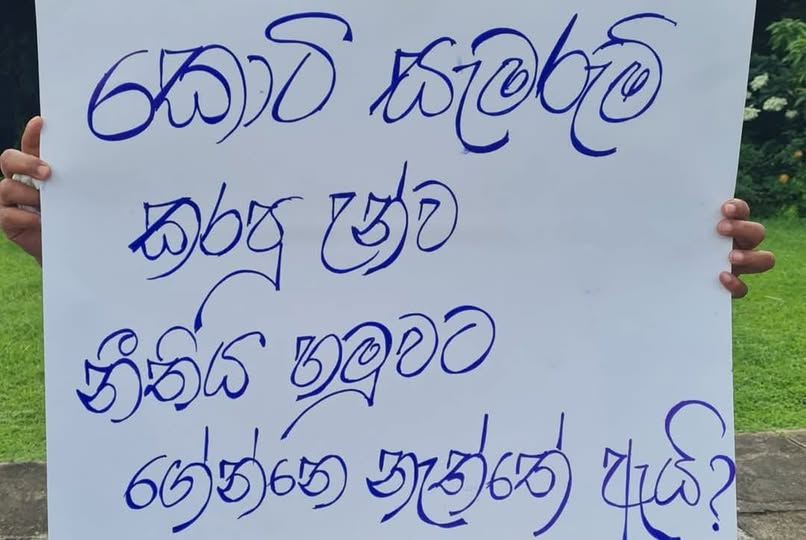 කොටි සැමරුම්
කරපු උන්ව
නීතියි හමුවට
ගේන්නෙ නැත්තේ ඇයි?